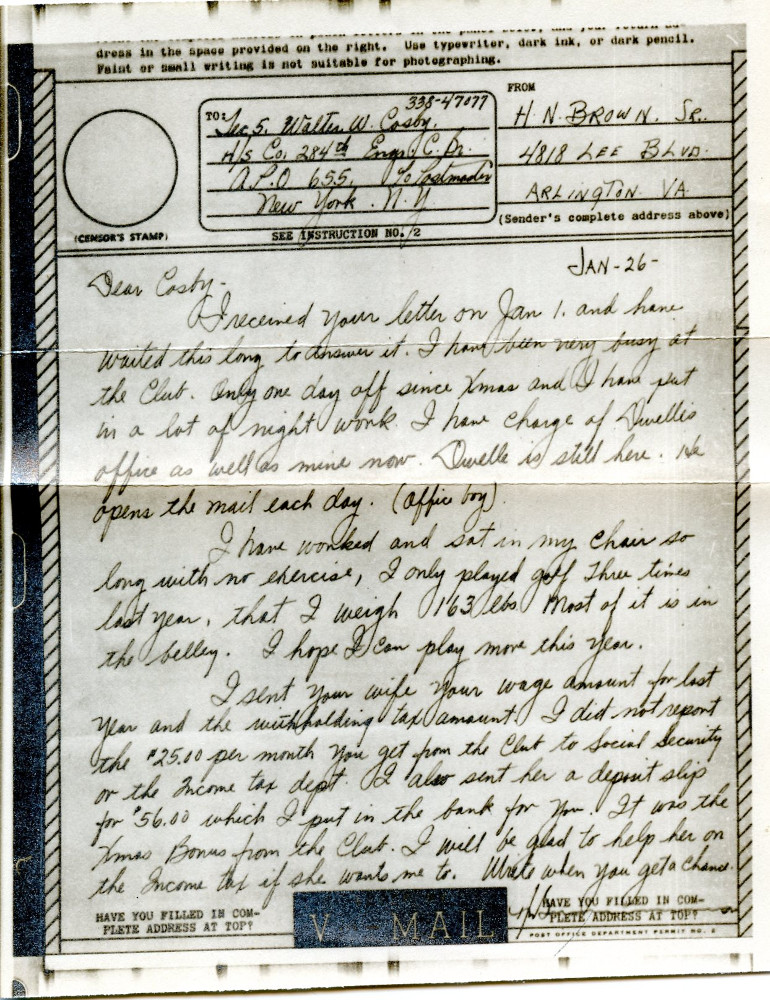 dress in the space provided on the right. Use typewriter, dark ink, or dark pencil.
Faint or small writing is not suitable for photographing.
TO:
338-47077
Tec 5. Walter W. Cosby.
H/S Co. 284th Engr. C. Bn.
A.P.O 655, c/o Postmaster
New York. N.Y
FROM
H. N. BROWN. SR.
4818 LEE BLVD.
ARLINGTON. VA.
(Sender's complete address above)
(CENSOR'S STAMP)
SEE INSTRUCTION NO. 2
JAN-26-
Dear Cosby-
I received your letter on Jan 1. and have
waited this long to answer it. I have been very busy at
the Club. Only one day off since Xmas and I have put
in a lot of night work. I have charge of Dwelles
office as well as mine now. Dwelle is still here. He
opens the mail each day. (office boy).
I have worked and sat in my chair so
long with no exercise, I only played golf three times
last year, that I weigh 163 lbs Most of it is in
the belley. I hope I can play more this year.
I sent your wife your wage amount for last
year and the withholding tax amount. I did not report
the $25.00 per month you get from the Club to Social Security
or the Income tax dept. I also sent her a deposit slip
for $56.00 which I put in the bank for you. It was the
Xmas Bonus from the Club. I will be glad to help her on
the Income tax if she wants me to. Write when you get a chance.
HAVE YOU FILLED IN COM-
PLETE ADDRESS AT TOP?
V MAIL
HAVE YOU FILLED IN COM-
PLETE ADDRESS AT TOP?
POST OFFICE DEPARTMENT PERMIT NO. 2